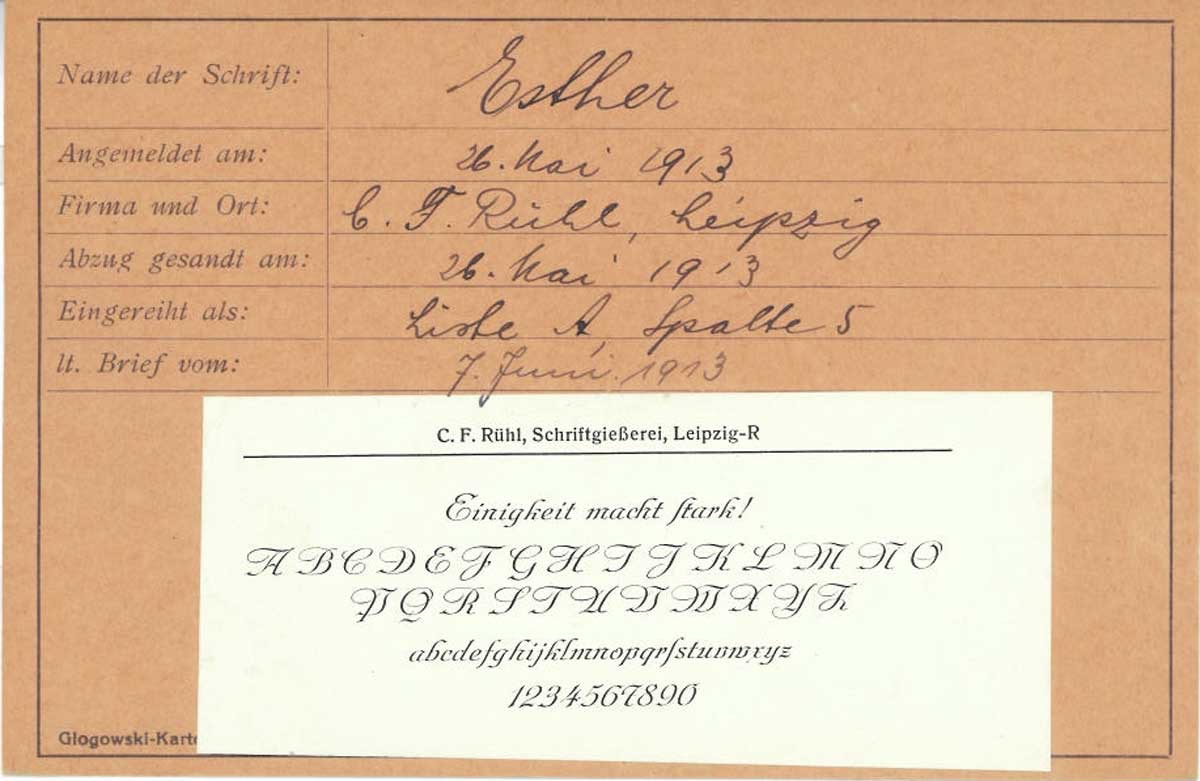 Name der Schrift: Esther
Angemeldet am: 26. Mai 1913
Firma und Ort: C. F. Rühl, Leipzig
Abzug gesandt am: 26. Mai 1913
Eingereiht als: Liste A, Spalte 5
lt. Brief vom: 7. Juni 1913
C. F. Rühl, Schriftgießerei, Leipzig-R
Einigkeit macht ſtark!
A B C D E F G H I J K L M N O
P Q R S T U V W X Y Z
abcdefghijklmnopqrſstuvwxyz
1234567890
Glogowski-Karte